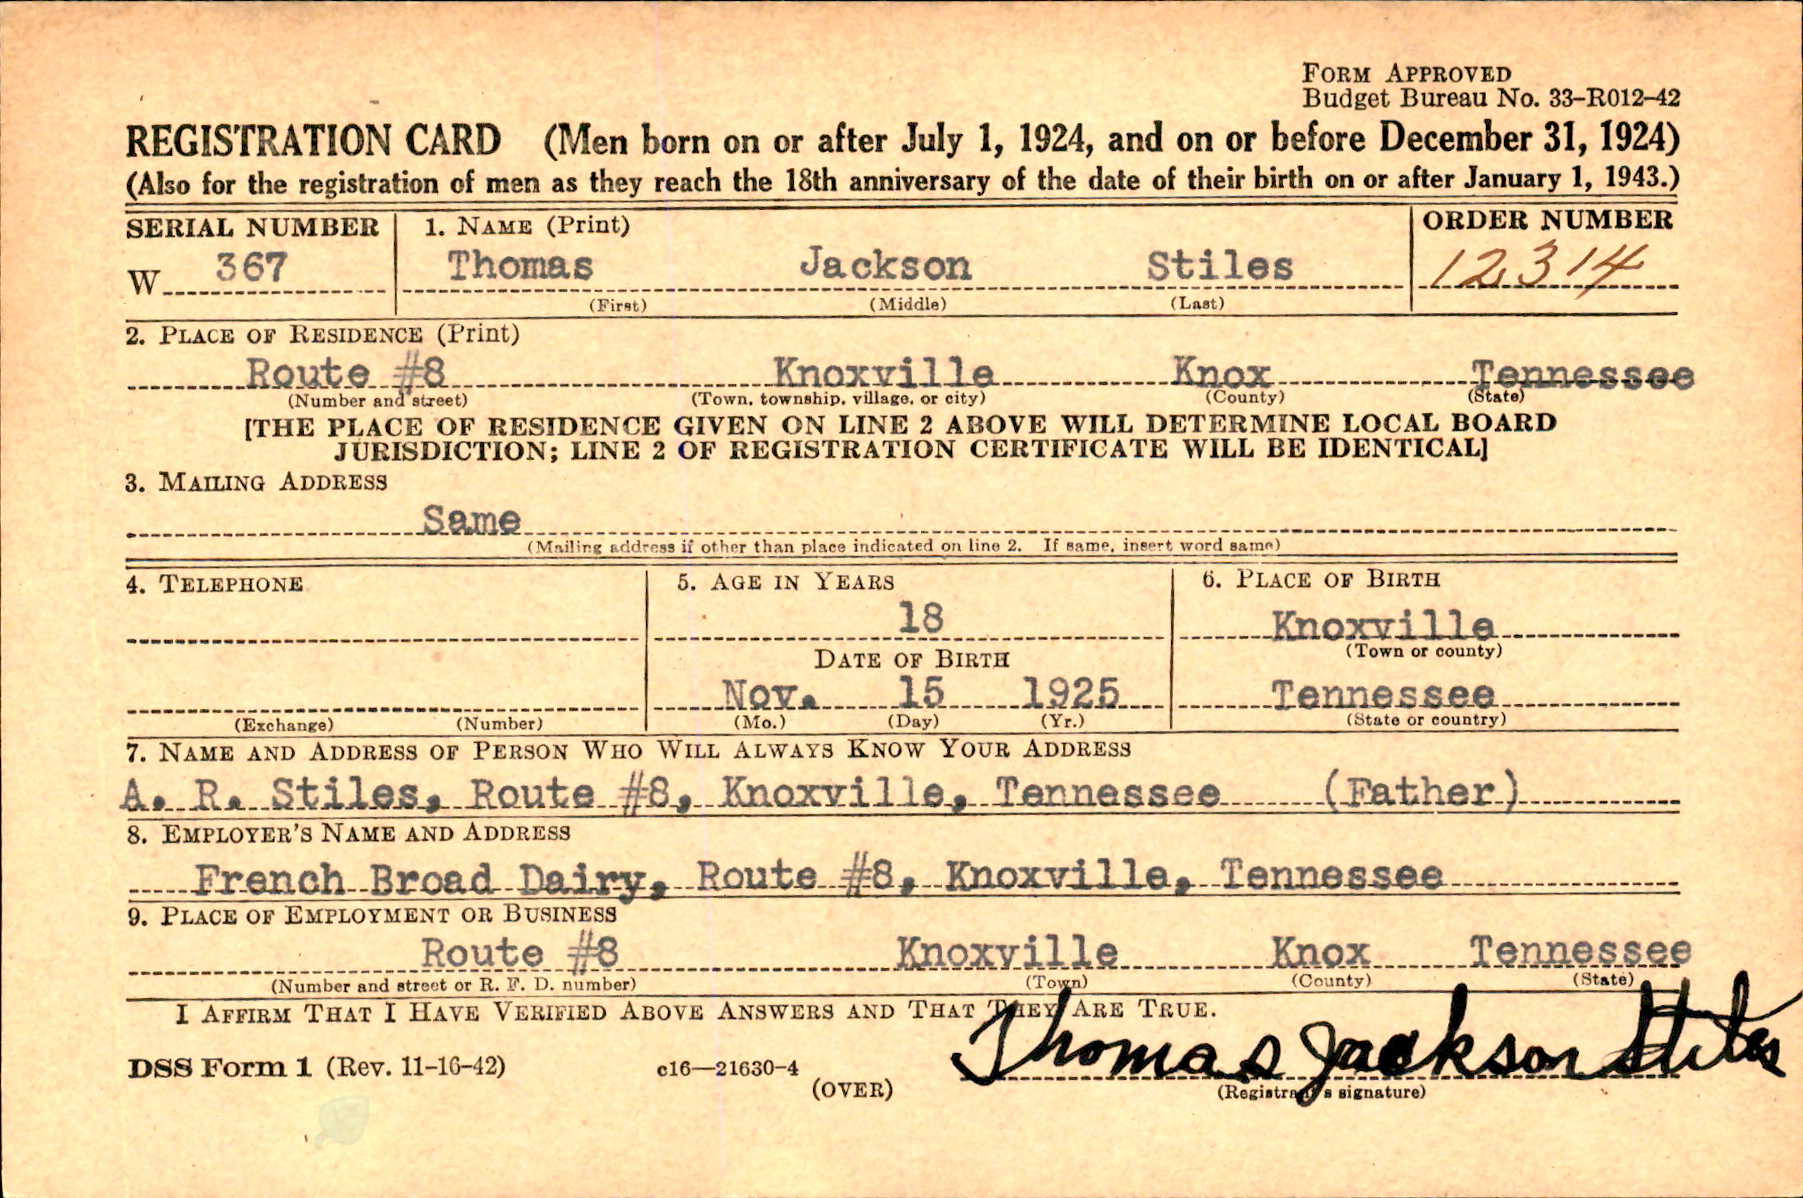 FORM APPROVED
Budget Bureau No. 33–R012–42
REGISTRATION CARD (Men born on or after July 1, 1924, and on or before December 31, 1924)
(Also for the registration of men as they reach the 18th anniversary of the date of their birth on or after January 1, 1943.)
SERIAL NUMBER 1. NAME (Print) ORDER NUMBER
W 367 Thomas Jackson Stiles 12314
(First) (Middle) (Last)
2. PLACE OF RESIDENCE (Print)
Route #8 Knoxville Knox Tennessee
(Number and street) (Town, township, village, or city) (County) (State)
[THE PLACE OF RESIDENCE GIVEN ON LINE 2 ABOVE WILL DETERMINE LOCAL BOARD
JURISDICTION; LINE 2 OF REGISTRATION CERTIFICATE WILL BE IDENTICAL]
3. MAILING ADDRESS
Same
(Mailing address if other than place indicated on line 2. If same, insert word same)
4. TELEPHONE 5. AGE IN YEARS 6. PLACE OF BIRTH
18 Knoxville
(Town or county)
DATE OF BIRTH
Nov. 15 1925 Tennessee
(Exchange) (Number) (Mo.) (Day) (Yr.) (State or country)
7. NAME AND ADDRESS OF PERSON WHO WILL ALWAYS KNOW YOUR ADDRESS
A. R. Stiles, Route #8, Knoxville, Tennessee (Father)
8. EMPLOYER'S NAME AND ADDRESS
French Broad Dairy, Route #8, Knoxville, Tennessee
9. PLACE OF EMPLOYMENT OR BUSINESS
Route #8 Knoxville Knox Tennessee
(Number and street or R. F. D. number) (Town) (County) (State)
I AFFIRM THAT I HAVE VERIFIED ABOVE ANSWERS AND THAT THEY ARE TRUE.
Thomas Jackson Stiles
DSS Form 1 (Rev. 11–16–42) c16—21630–4
(OVER) (Registrant's signature)